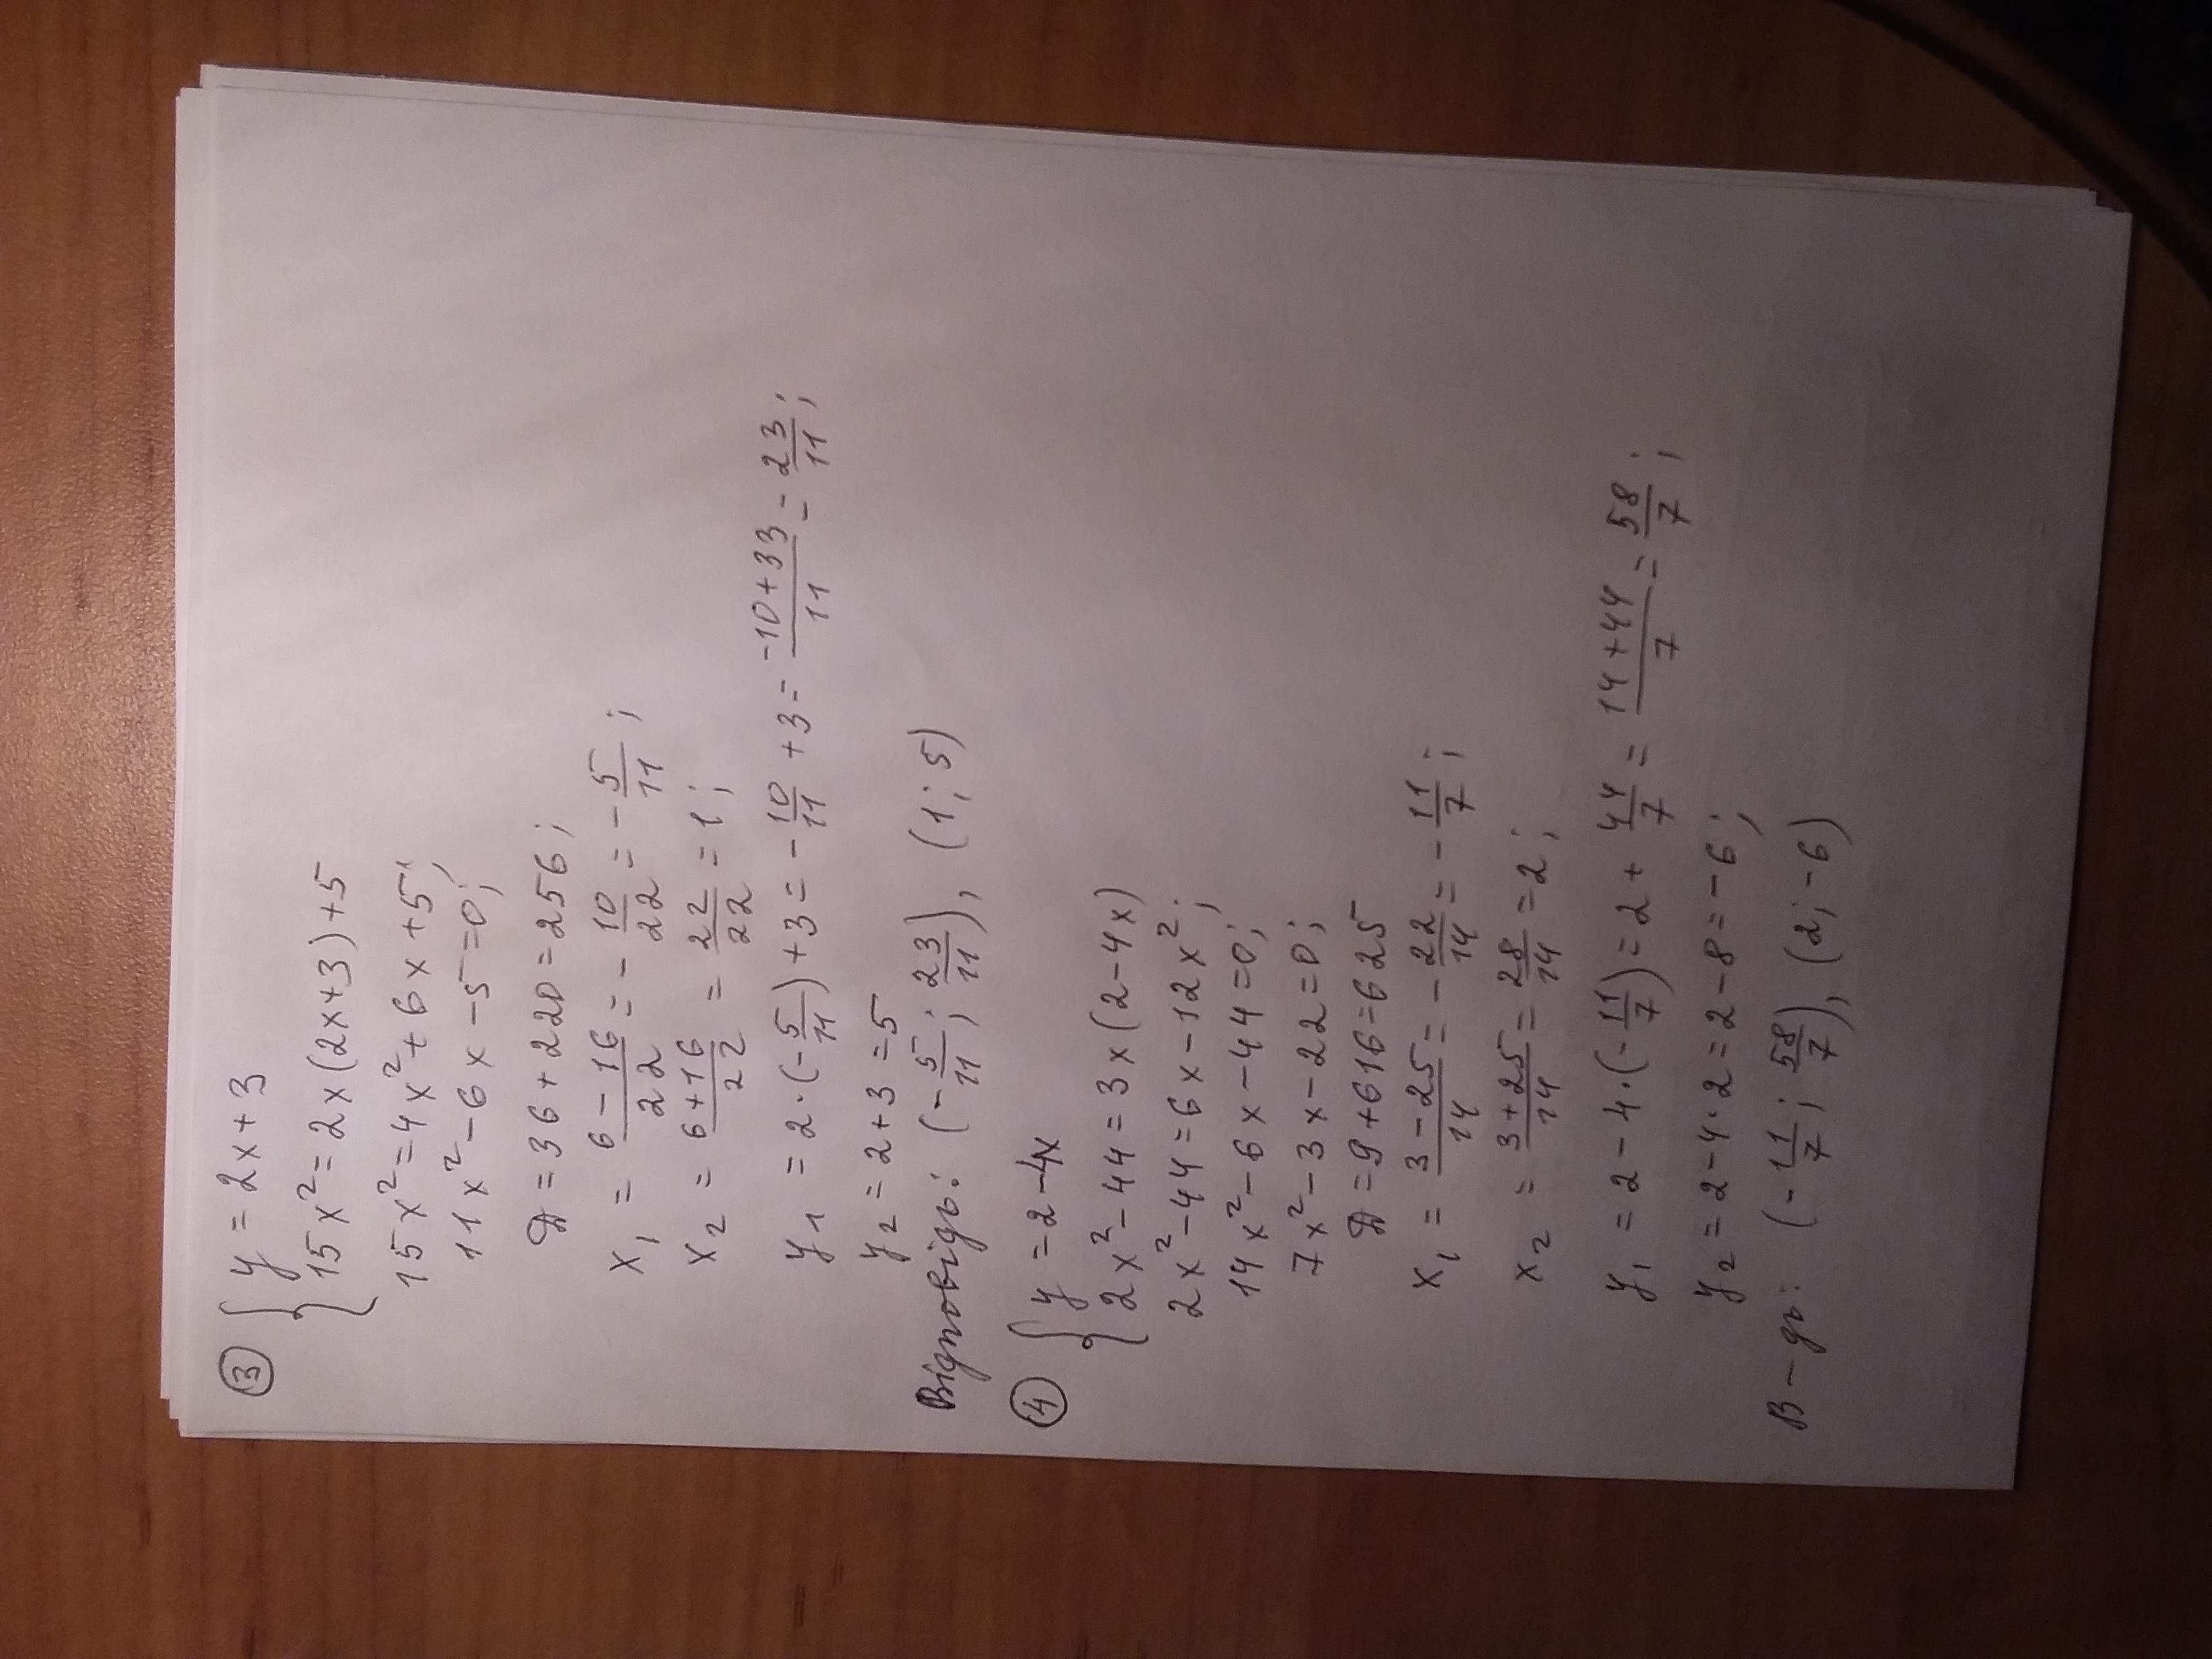 ③ { y = 2x + 3
15x² = 2x(2x+3)+5
15x² = 4x² + 6x + 5;
11x² - 6x - 5 = 0;
D = 36 + 220 = 256;
x₁ = (6-16)/22 = -10/22 = -5/11;
x₂ = (6+16)/22 = 22/22 = 1;
y₁ = 2·(-5/11)+3 = -10/11 + 3 = (-10+33)/11 = 23/11;
y₂ = 2+3 = 5
Відповідь: (-5/11; 23/11), (1; 5)
④ { y = 2 - 4x
2x² - 44 = 3x(2-4x)
2x² - 44 = 6x - 12x²;
14x² - 6x - 44 = 0;
7x² - 3x - 22 = 0;
D = 9 + 616 = 625
x₁ = (3-25)/14 = -22/14 = -11/7;
x₂ = (3+25)/14 = 28/14 = 2;
y₁ = 2 - 4·(-11/7) = 2 + 44/7 = (14+44)/7 = 58/7;
y₂ = 2 - 4·2 = 2 - 8 = -6;
В-дь: (-11/7; 58/7), (2; -6)